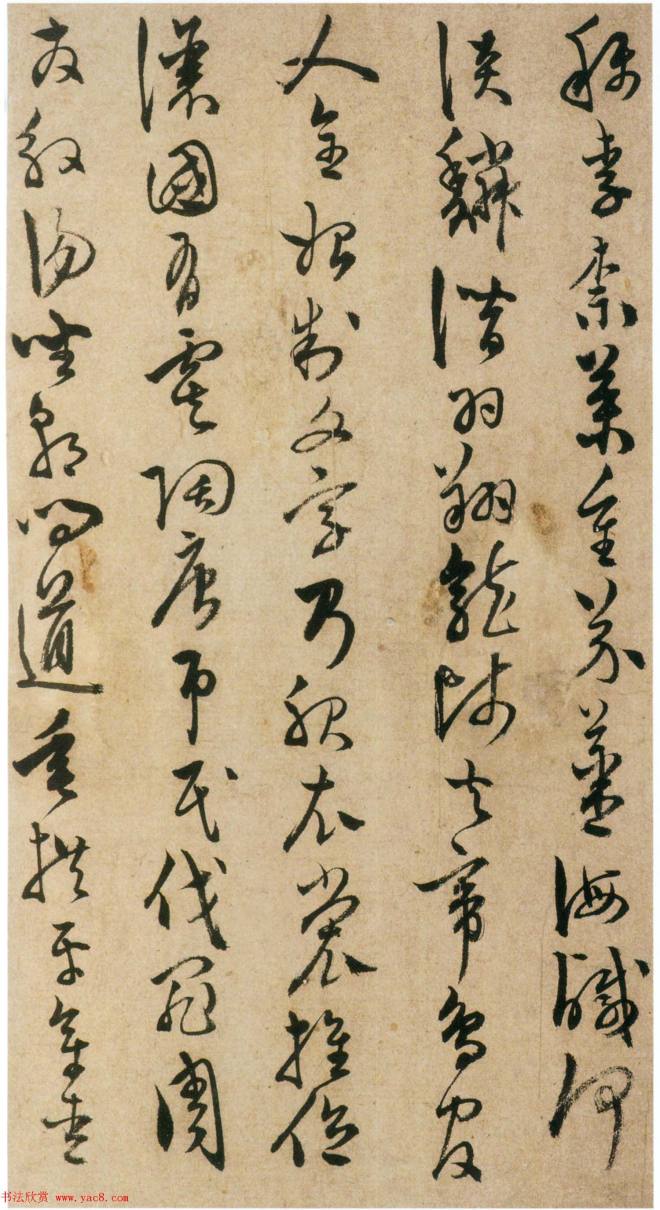 珍李柰菜重芥薑海鹹河
淡鱗潛羽翔龍師火帝鳥官
人皇始制文字乃服衣裳推位
讓國有虞陶唐弔民伐罪周
發殷湯坐朝問道垂拱平章愛
书法欣赏 www.yac8.com